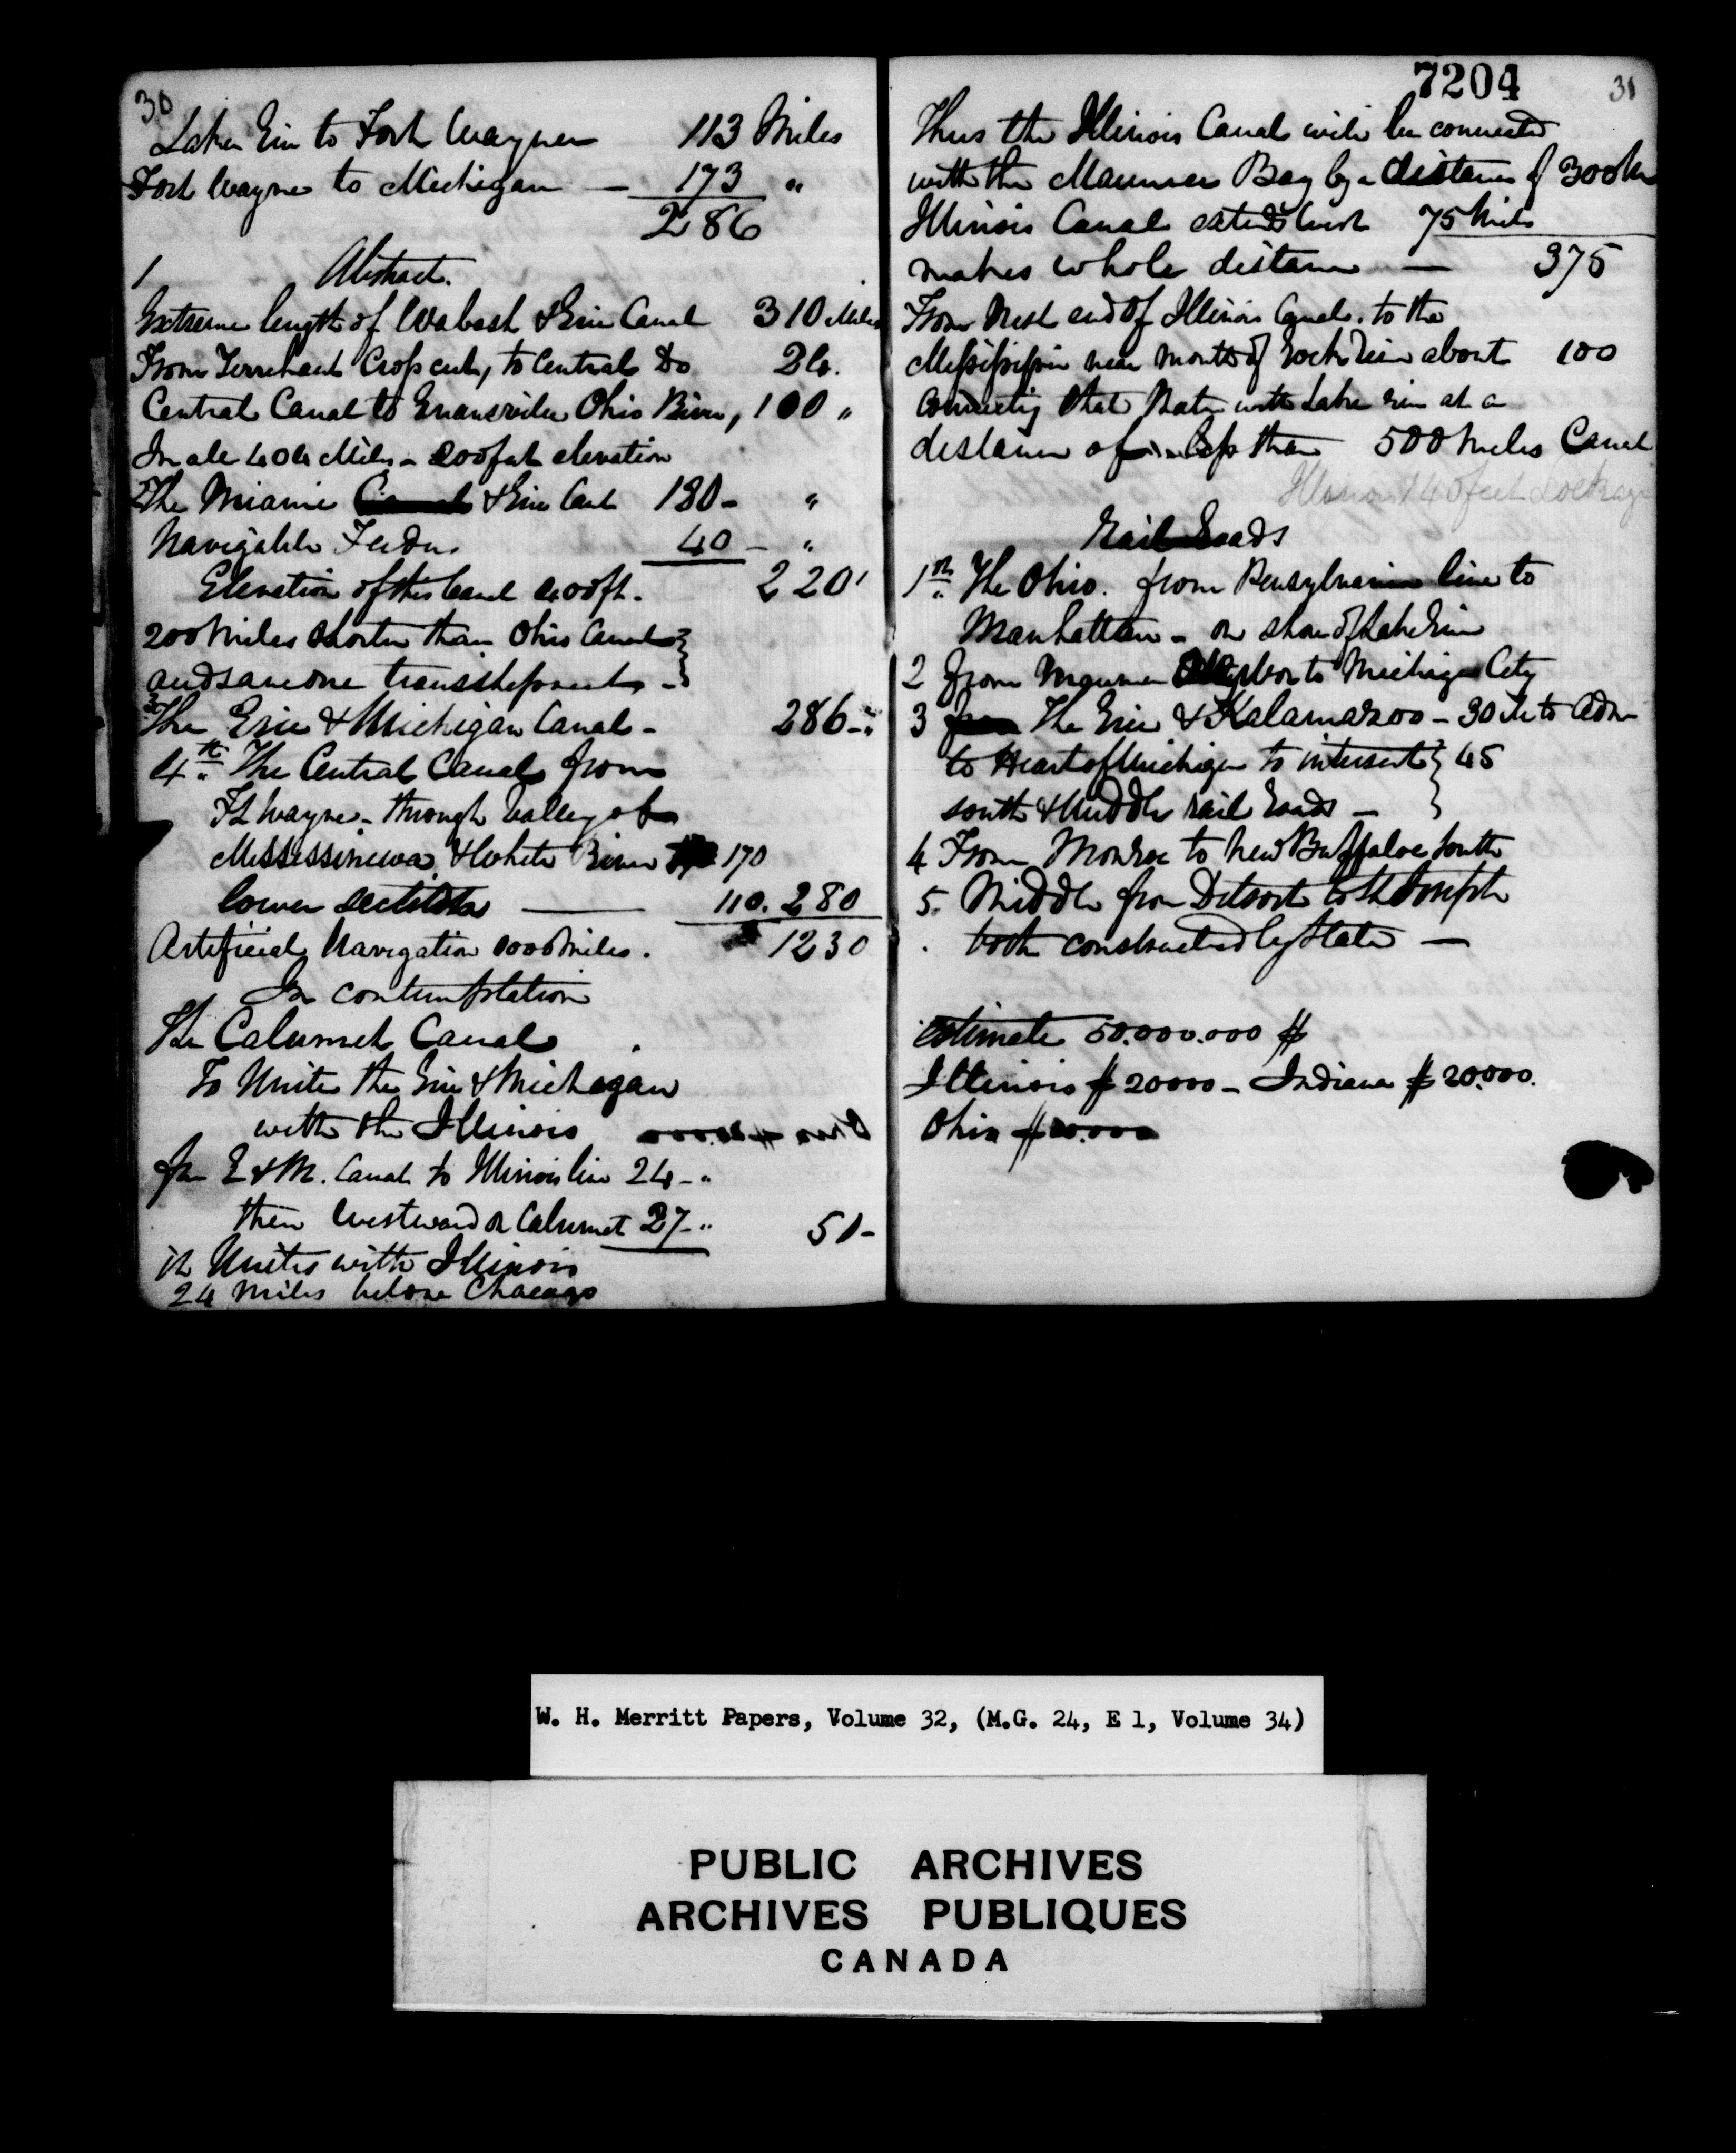 30
Lake Erie to Fort Wayne 113 Miles
Fort Wayne to Michigan — 173 "
286
1 Abstract.
Extreme length of Wabash & Erie Canal 310 Miles
From Terrehaut Cross cut, to Central Do
Central Canal to Evansville Ohio River, 100 "
In all 404 Miles - 200 feet elevation
The Miami Canal & Erie Canl 180 - "
Navigable Feeder 40 - "
Elevation of this Canal 400 ft. 220
200 Miles Shorter than Ohio Canal
and save one transshipment -
3 The Erie & Michigan Canal - 286 - "
4th. The Central Canal from
Ft Wayne - through Valley of
Mississinewa & White River 170
lower section — 110. 280
Artificial Navigation 1000 Miles. 1230
In contemplation
The Calumet Canal
To Unite the Erie & Michegan
with the Illinois
fm E & M. Canal to Illinois line 24 - "
then Westward on Calumet 27 - " 51 -
it Unites with Illinois
24 Miles below Chacago
7204
31
Thus the Illinois Canal will be connected
with the Maumee Bay by a distance of 300 M
Illinois Canal extends West 75 Miles
makes whole distance — 375
From West end of Illinois Canal. to the
Mississippi near mouth of Rock River about 100
Connectig that Water with Lake Erie at a
distance of less than 500 Miles Canal
Illinois 140 feet Lockage
Rail Roads
1st. The Ohio. from Pensylvania line to
Manhattan - on shore of Lake Erie
2 from Maumee to Michigan City
3 The Erie & Kalamazoo - 30 M to Adn
to Heart of Michigan to intersect 45
south & Middle rail Roads —
4 From Monroe to New Buffaloe South
5. Middle from Detroit to St Joseph
both constructed by State —
Estimate 50.000.000 $
Illinois $ 20000 - Indiana $ 20.000.
Ohio
W. H. Merritt Papers, Volume 32, (M.G. 24, E 1, Volume 34)
PUBLIC ARCHIVES
ARCHIVES PUBLIQUES
CANADA